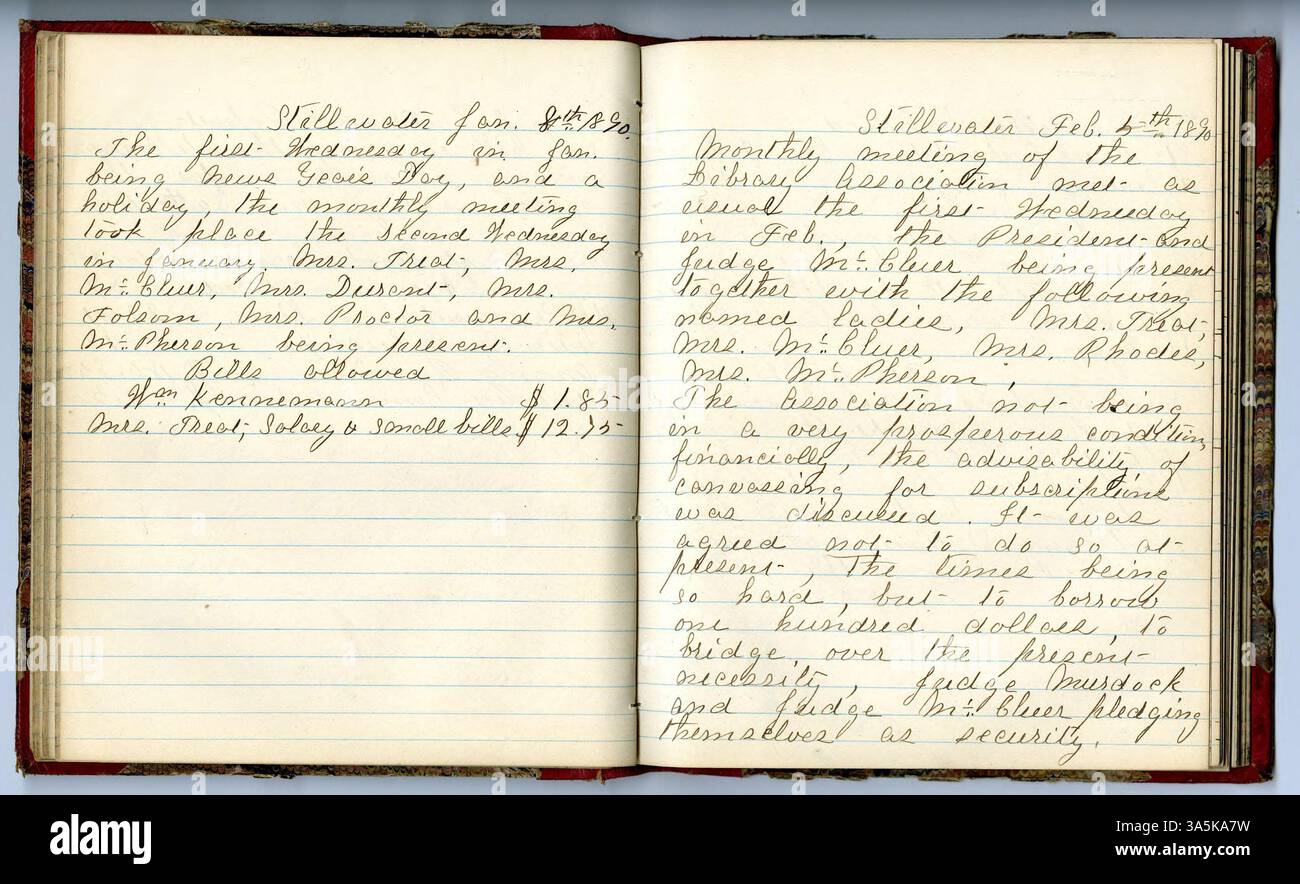 Stillwater Jan. 8th 1890.
The first Wednesday in Jan.
being News Years Day, and a
holiday, the monthly meeting
took place the second Wednesday
in January. Mrs. Treat, Mrs.
Mc Cluer, Mrs. Durant, Mrs.
Folsom, Mrs. Proctor and Mrs.
Mc Pherson being present.
Bills allowed
Wm Kennemann $ 1.85
Mrs. Treat, Salary & small bills $ 12.75
Stillwater Feb. 5th 1890
Monthly meeting of the
Library Association met as
usual the first Wednesday
in Feb., the President and
Judge Mc Cluer being present
together with the following
named ladies, Mrs. Treat,
Mrs. Mc Cluer, Mrs. Rhodes,
Mrs. Mc Pherson,
The Association not being
in a very prosperous condition,
financially, the advisability of
canvassing for subscriptions
was discussed. It was
agreed not to do so at
present, The times being
so hard, but to borrow
one hundred dollars, to
bridge over the present
necessity, Judge Murdock
and Judge Mc Cluer pledging
themselves as security.
alamy
alamy
Image ID: 3A5KA7W
www.alamy.com